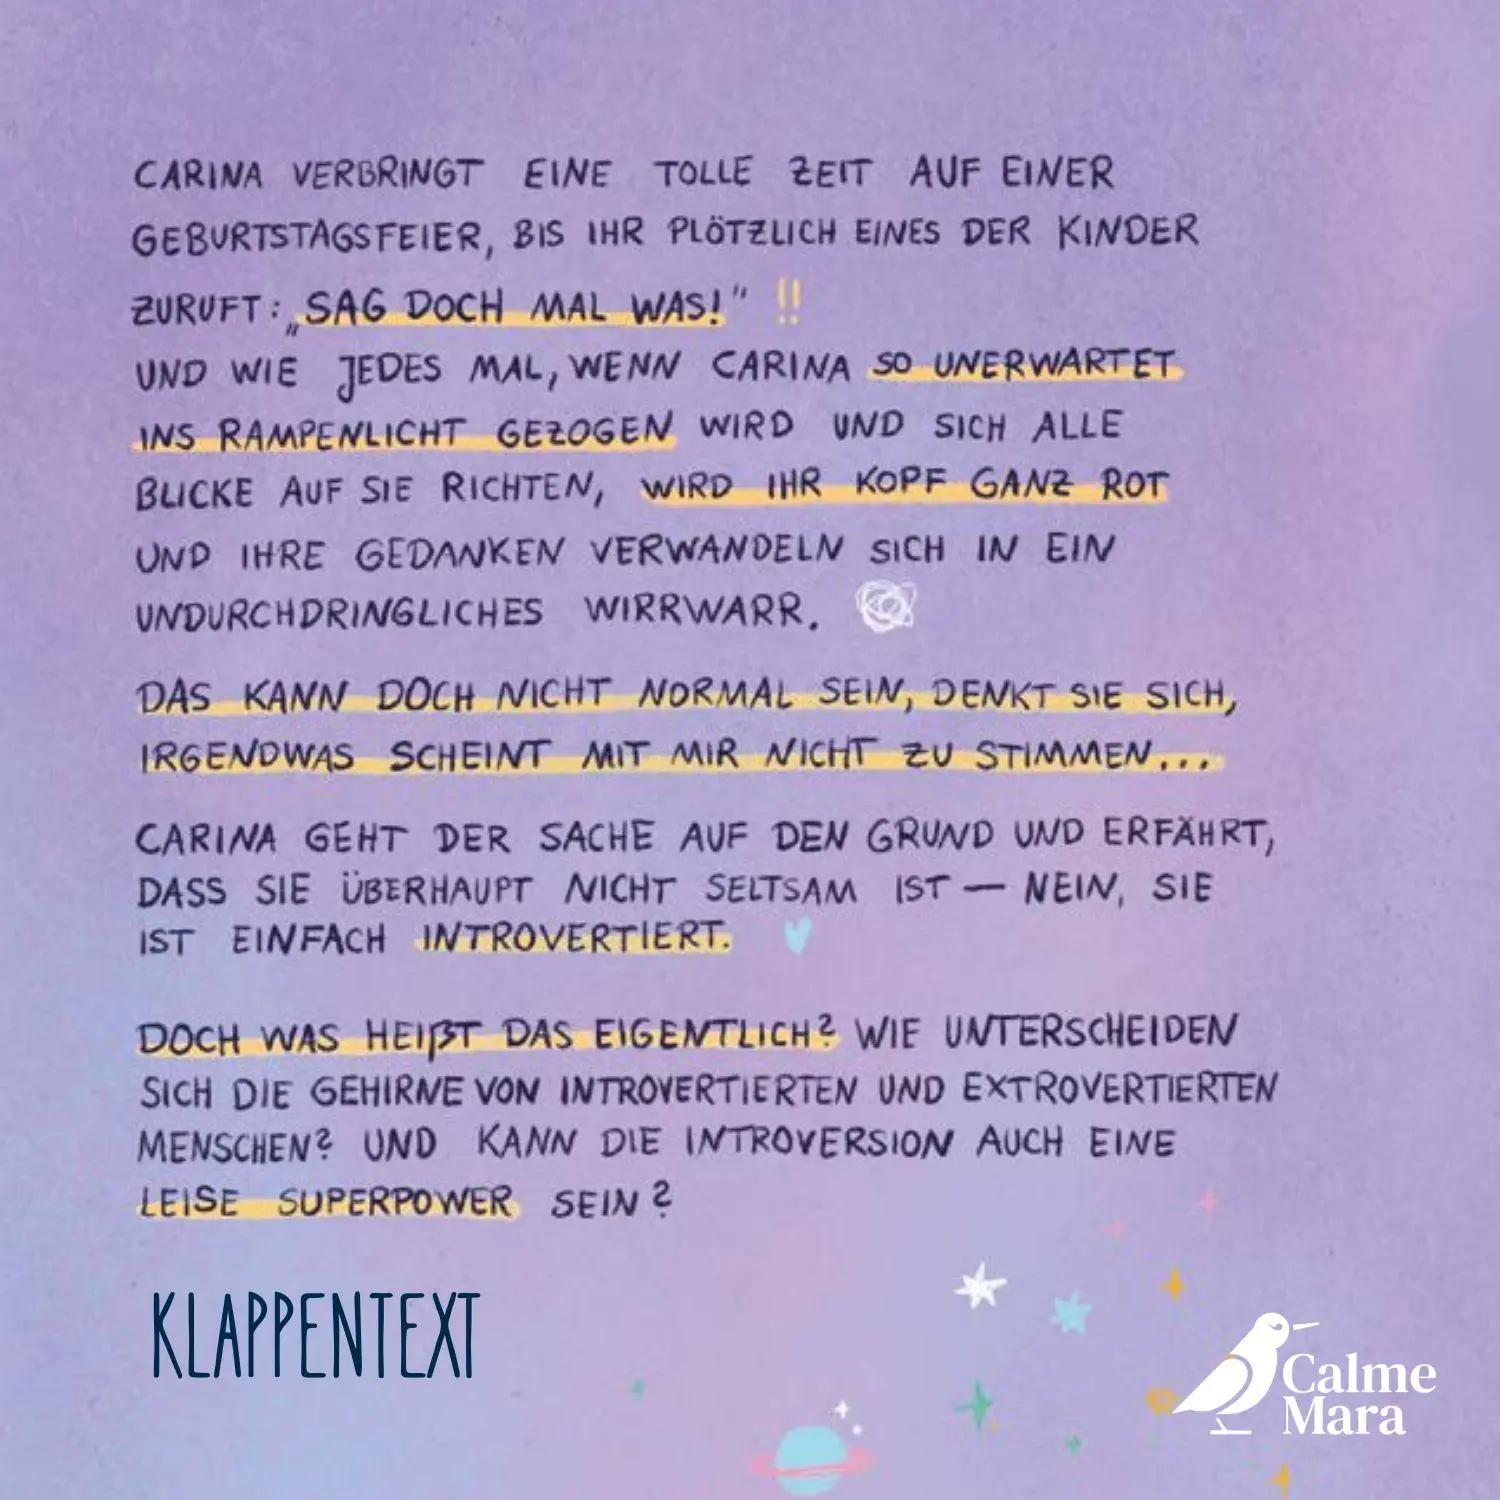 CARINA VERBRINGT EINE TOLLE ZEIT AUF EINER
GEBURTSTAGSFEIER, BIS IHR PLÖTZLICH EINES DER KINDER
ZURUFT: „SAG DOCH MAL WAS!" !!
UND WIE JEDES MAL, WENN CARINA SO UNERWARTET
INS RAMPENLICHT GEZOGEN WIRD UND SICH ALLE
BLICKE AUF SIE RICHTEN, WIRD IHR KOPF GANZ ROT
UND IHRE GEDANKEN VERWANDELN SICH IN EIN
UNDURCHDRINGLICHES WIRRWARR.
DAS KANN DOCH NICHT NORMAL SEIN, DENKT SIE SICH,
IRGENDWAS SCHEINT MIT MIR NICHT ZU STIMMEN...
CARINA GEHT DER SACHE AUF DEN GRUND UND ERFÄHRT,
DASS SIE ÜBERHAUPT NICHT SELTSAM IST — NEIN, SIE
IST EINFACH INTROVERTIERT.
DOCH WAS HEIßT DAS EIGENTLICH? WIE UNTERSCHEIDEN
SICH DIE GEHIRNE VON INTROVERTIERTEN UND EXTROVERTIERTEN
MENSCHEN? UND KANN DIE INTROVERSION AUCH EINE
LEISE SUPERPOWER SEIN?
KLAPPENTEXT
Calme
Mara